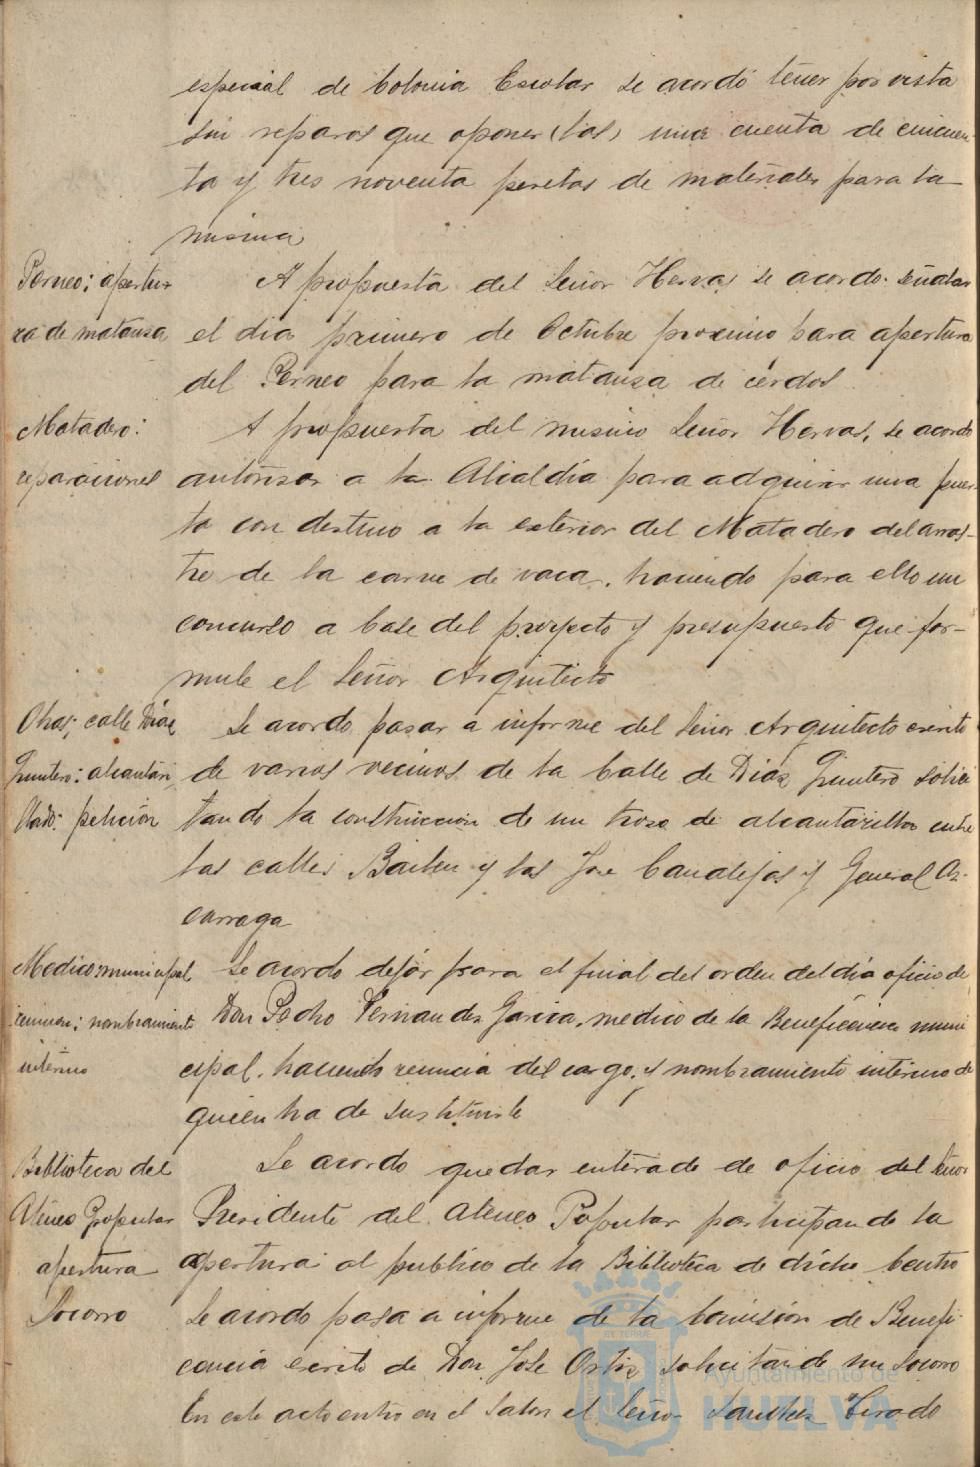 especial de Colonia Escolar se acordó tener por vista
sin reparos que oponer (las) una cuenta de cincuen-
ta y tres noventa pesetas de materiales para la
misma
Perneo; apertu-
ra de matanza
A propuesta del Señor Hervas se acordo señalar
el dia primero de Octubre proximo para apertura
del Perneo para la matanza de cerdos
Matadero:
reparaciones
A propuesta del mismo Señor Hervas, se acordo
autorizar a la Alcaldía para adquirir una puer-
ta con destino a la exterior del Matadero del arras-
tre de la carne de vaca, haciendo para ello un
concurso a base del proyecto y presupuesto que for-
mule el Señor Arquitecto
Obras; calle Díaz
Quintero: alcantari
llado: petición
Se acordo pasar a informe del Señor Arquitecto escrito
de varios vecinos de la Calle de Diaz Quintero solici
tando la construccion de un trozo de alcantarilla entre
las calles Bailen y las Jose Canalejas y General Az-
carraga
Medico municipal
renuncia; nombramiento
interino
Se acordo dejar para el final del orden del día oficio de
Don Pedro Fernandez Garcia, medico de la Beneficencia muni
cipal, haciendo renuncia del cargo, y nombramiento interino de
quien ha de sustituirle
Biblioteca del
Ateneo Popular
apertura
Se acordo quedar enterado de oficio del Señor
Presidente del Ateneo Popular participando la
apertura al publico de la Biblioteca de dicho Centro
Socorro
Se acordo pasa a informe de la Comisión de Benefi
cencia escrito de Don Jose Ortiz solicitando un socorro
En este acto entro en el Salon el Señor Sanchez Tirado
Ayuntamiento de
HUELVA